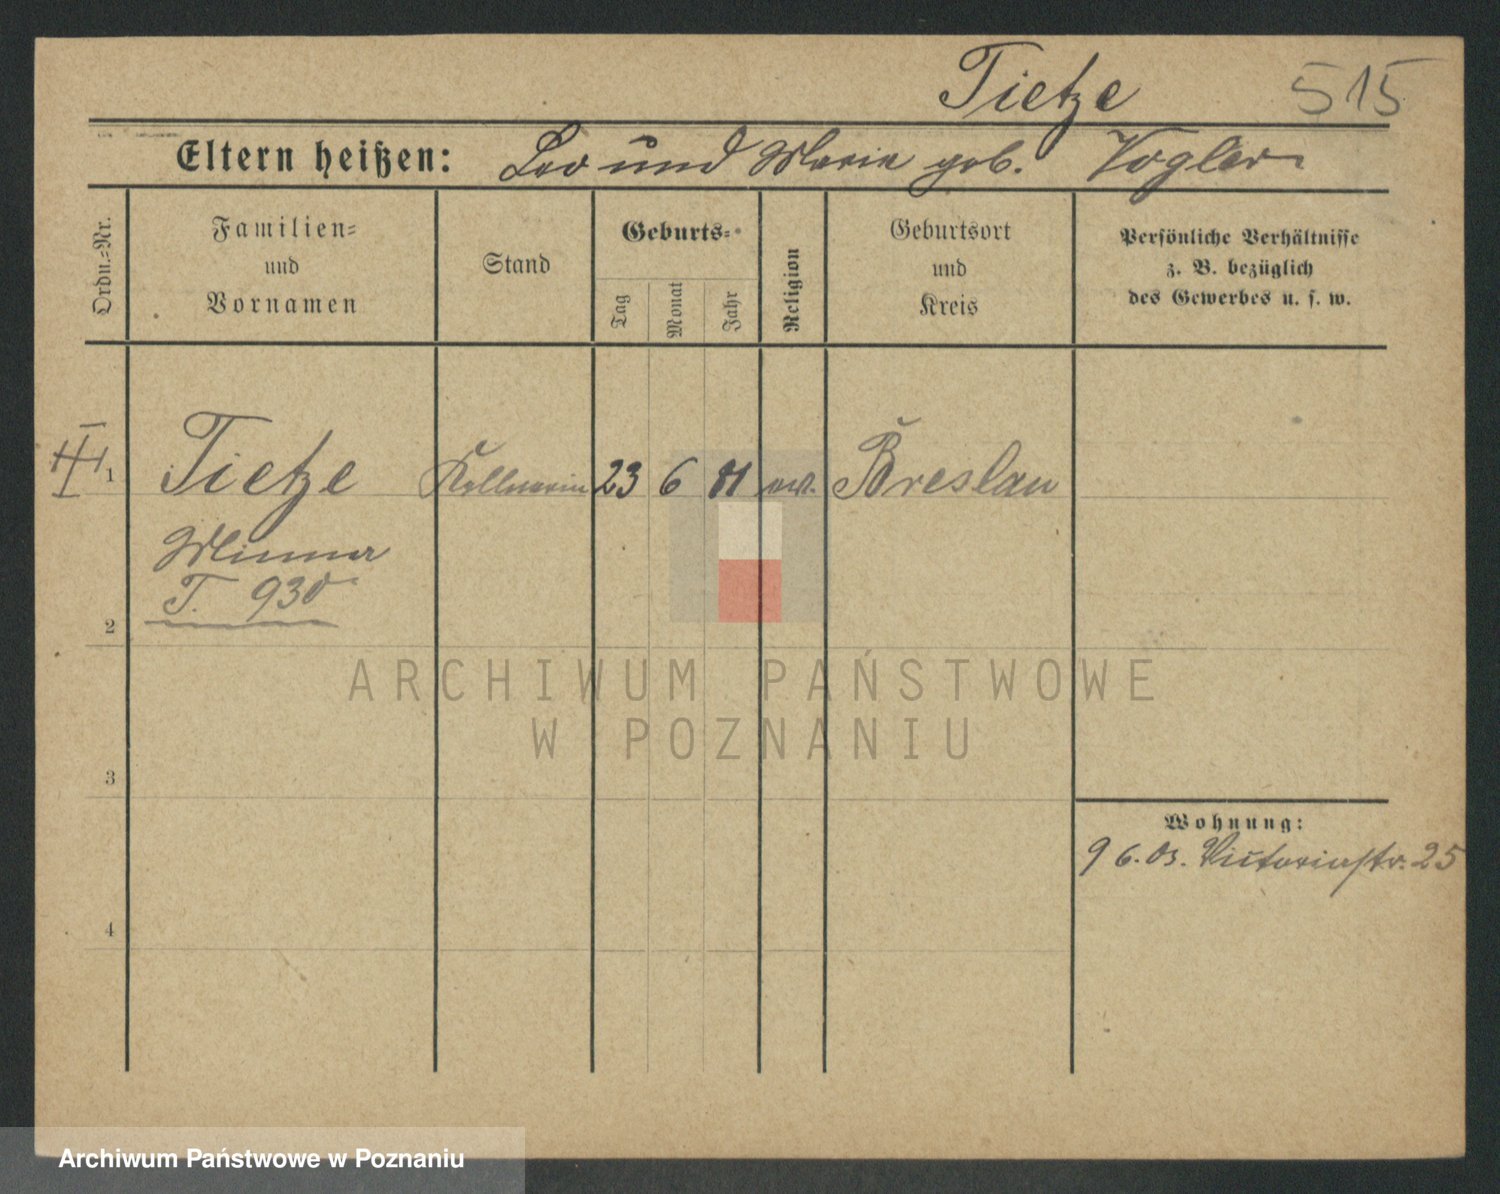 Tietze 515
Eltern heißen: Leo und Marie geb. Vogler
Ordn.=Nr.
Familien=
und
Vornamen
Stand
Geburts=
Tag
Monat
Jahr
Religion
Geburtsort
und
Kreis
Persönliche Verhältnisse
z. B. bezüglich
des Gewerbes u. s. w.
1 Tietze Kellnerin 23 6 81 ev. Breslau
Minna
T. 930
2
3
4
Wohnung:
9 6. 03. Victoriastr. 25
ARCHIWUM PAŃSTWOWE
W POZNANIU
Archiwum Państwowe w Poznaniu